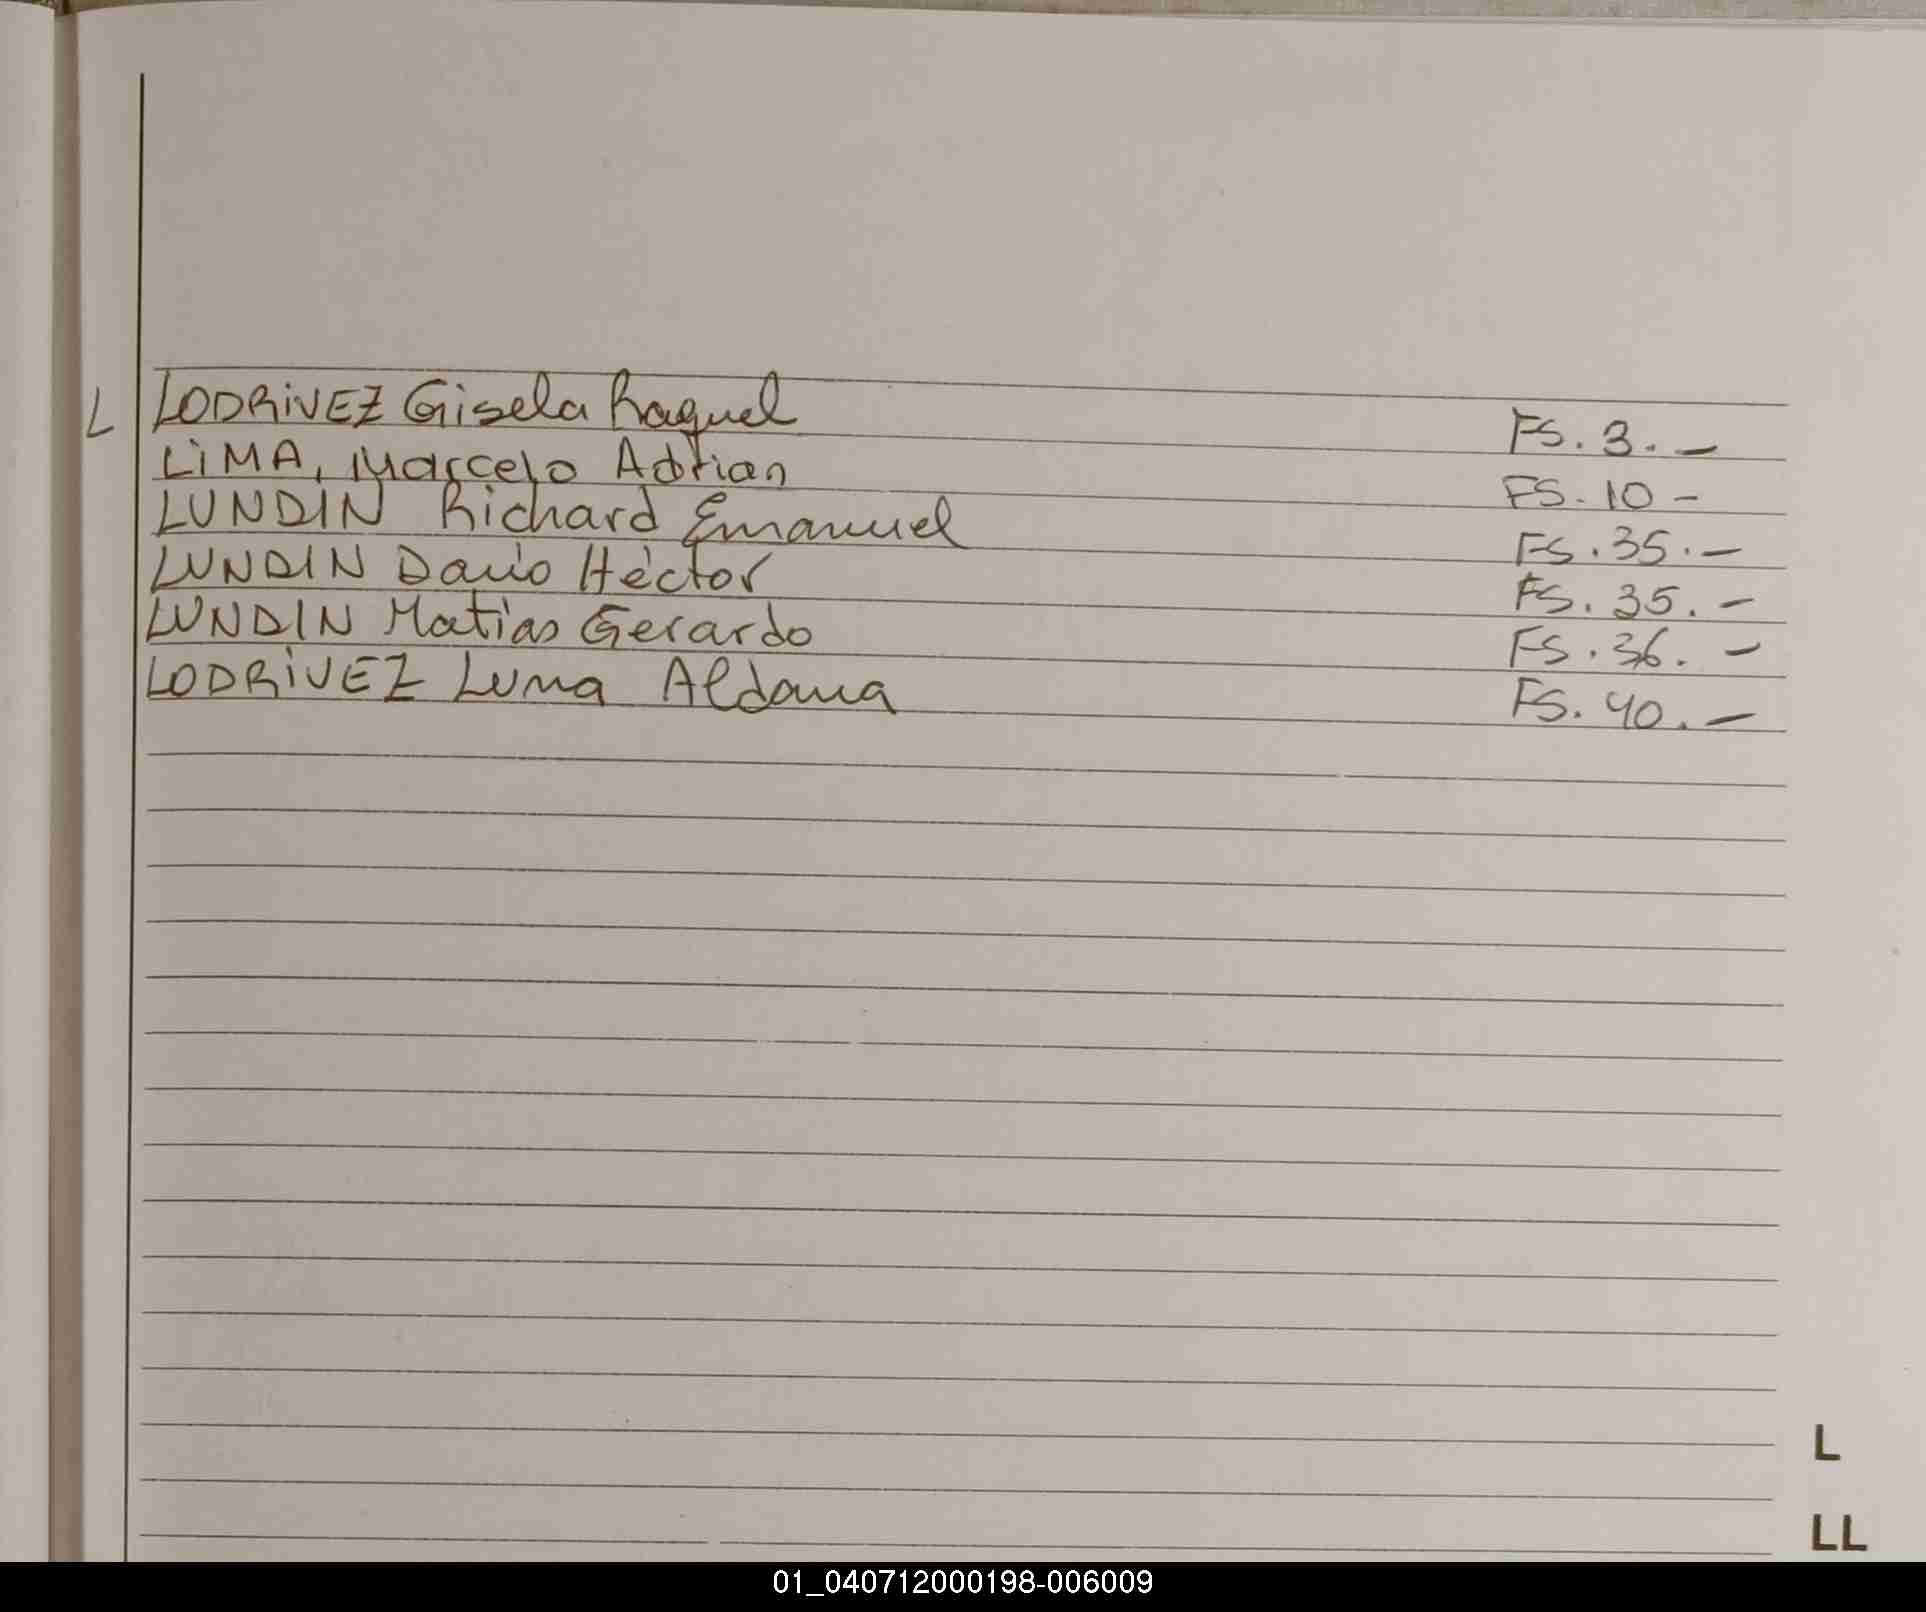 L LODRIVEZ Gisela Raquel FS. 3. -
LIMA, Marcelo Adrian FS. 10 -
LUNDIN Richard Emanuel FS. 35. -
LUNDIN Dario Héctor FS. 35. -
LUNDIN Matías Gerardo FS. 36. -
LODRIVEZ Luma Aldana FS. 40. -
L
LL
01_040712000198-006009